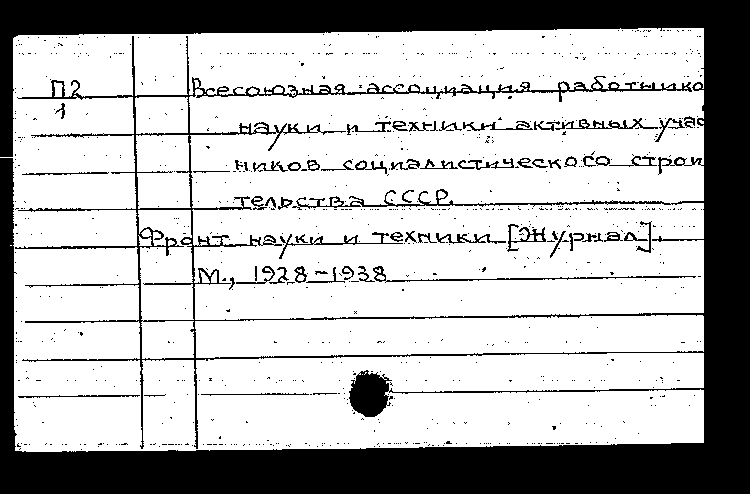 П2 Всесоюзная ассоциация работнико
1 науки и техники активных учас
ников социалистического строи
тельства СССР.
Фронт науки и техники [Журнал].
М., 1928-1938